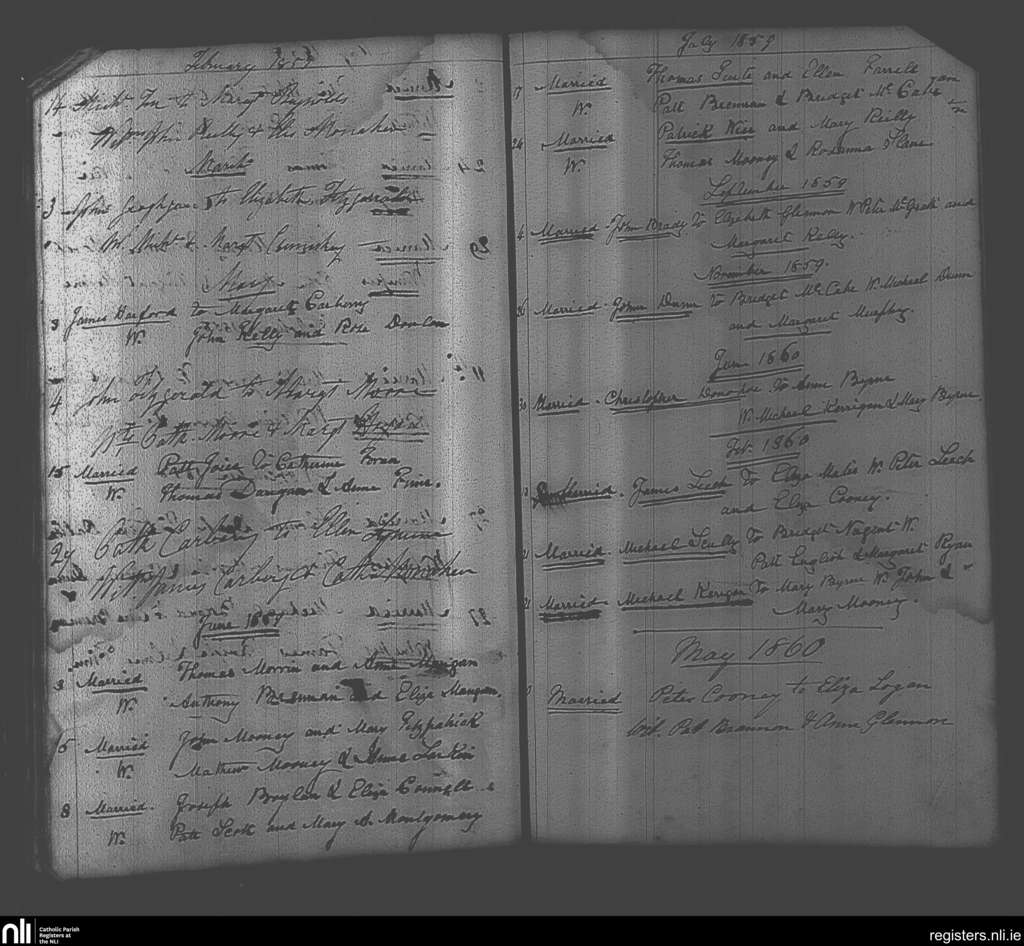 February 1859
14 Michl to Margt Reynolds
Wss John Reilly & Monaher
March
3 John Geoghgan to Elizabeth Fitzgerald
W. Michl & Margt Cuniskey
May
3 James Harford to Margaret Carberry
W. John Kelly and Rose Donlan
4 John Fitzgerald to Margt Moore
Wts Cath Moore & Margt
15 Married Patt Joice To Catherine
W. Thomas Dungan & Anne
27 Path Carberry to Ellen
Wt James Carberry & Cath
June 1859
3 Married Thomas Morrin and Anne Mangan
W. Anthony Brennan and Eliza Mangan.
15 Married John Mooney and Mary Fitzpatrick
W. Mathew Mooney & Anne Larkin
8 Married. Joseph Boylan & Eliza
W. Patt Scott and Mary A Montgomery
July 1859
17 Married Thomas and Ellen Farrell
W. Patt Brennan & Bridget Mc Cabe
24 Married Patrick Wise and Mary Reilly
W. Thomas Mooney & Rosanna
September 1859
4 Married John Brady To Elizabeth Glennon W Peter McGrath and
Margaret Kelly.
November 1859.
26 Married. John Dunn To Bridget Mc Cabe W. Michael Dunn
and Margaret Murphy.
1860
30 Married. Christopher Donohoe To Anne Byrne
W. Michael Kerrigan & Mary Byrne.
Feb. 1860
Married. James Leech To Eliza W. Peter Leech
and Eliza Cooney.
21 Married. Michael Scully To Bridget Nugent W.
Patt English & Margaret Ryan
21 Married Michael Kerigan To Mary Byrne W. John &
Mary Mooney.
May 1860
Married Peter Cooney to Eliza Logan
Wit. Pat Brennon & Anne Glennon
nli
Catholic Parish
Registers at
the NLI
registers.nli.ie